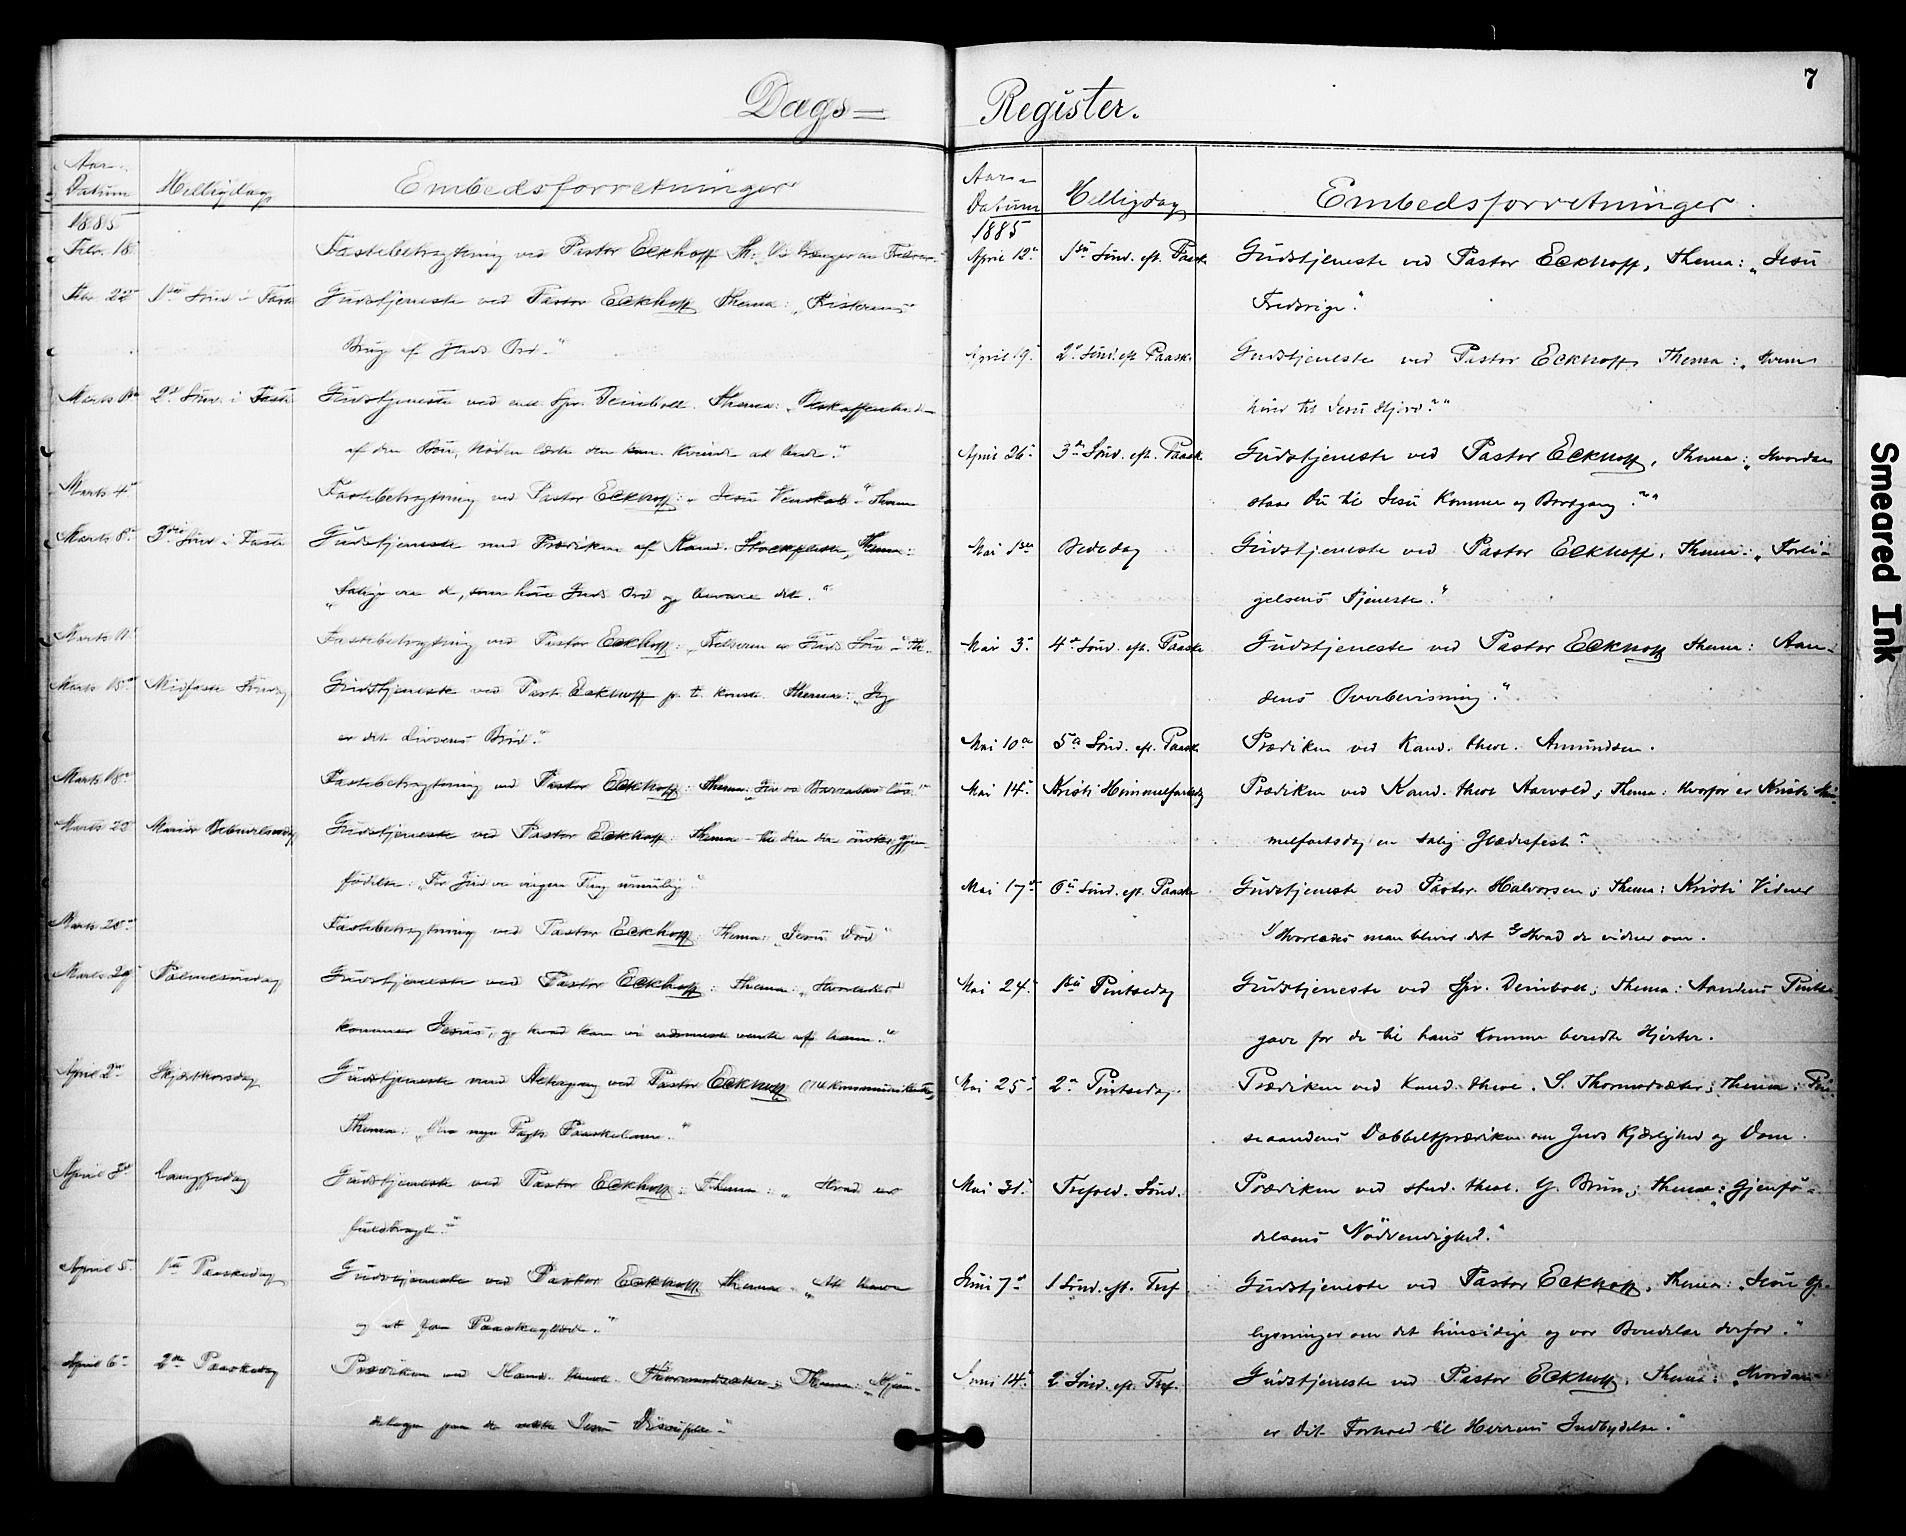 Dags=
Aar
Datum Helligdag Embedsforretninger
1885
Febr. 18 Fastebetragtning ved Pastor Eckhoff Th:
22 1ste Sönd i Faste Gudstjeneste ved Pastor Eckhoff Thema: „Kristerens
Brug af Guds Ord.“
Marts 1ste 2d Sönd. i Faste Gudstjeneste ved Deinboll. Thema: „Beskaffenhed
af den Bön, Nöden lærte den kan. Kvinde at bede.“
Marts 4 Fastebetragtning ved Pastor Eckhoff: „Jesu Venskab“ Thema
Marts 8 3die Sönd i Faste Gudstjeneste med Prædiken af Kand. Stockfleth, Thema:
„Salige ere de, som höre Guds Ord og bevare det.“
Marts 11 Fastebetragtning ved Pastor Eckhoff: „Frelseren er Guds Sön“ Th.
Marts 15 Midfaste Söndag Gudstjeneste ved Past. Eckhoff p. t. konst. Thema: „Jeg
er det Livsens Bröd.“
Marts 18 Fastebetragtning ved Pastor Eckhoff: Thema: „Giv os Barrabas lös.“
Marts 25 Mariæ Bebudelsesdag Gudstjeneste ved Pastor Eckhoff: Thema – til den der önsker Gjen-
födelse: „For Gud er ingen Ting umulig“
Marts 25 Fastebetragtning ved Pastor Eckhoff: Thema: „Jesu Död“
Marts 29 Palmesöndag Gudstjeneste ved Pastor Eckhoff: Thema: „Hvorledes
kommer Jesus, og hvad kan vi vente af ham.“
April 2 Skjærthorsdag Gudstjeneste med Altergang ved Pastor Eckhoff
Thema: „Den nye Pagts Paaskelam.“
April 3 Langfredag Gudstjeneste ved Pastor Eckhoff: Thema: „Hvad er
fuldbragt.“
April 5 1ste Paaskedag Gudstjeneste ved Pastor Eckhoff Thema: „At have
og at faa Paaskeglæde.“
April 6 2den Paaskedag Prædiken ved Kand. theol. Thormodsæter; Thema: „Kjen-
detegn paa de Jesu Disciple“
7
Register.
Aar
Datum Helligdag Embedsforretninger.
1885
April 12 1ste Sönd. eft. Paask. Gudstjeneste ved Pastor Eckhoff, Thema: „Jesu
Fredsrige.“
April 19. 2d Sönd. eft. Paask. Gudstjeneste ved Pastor Eckhoff, Thema: „Hvem
hörer til Jesu Hjord?“
April 26 3die Sönd. eft. Paask. Gudstjeneste ved Pastor Eckhoff, Thema: „Hvordan
staar Du til Jesu Komme og Bortgang?“
Mai 1ste Bededag Gudstjeneste ved Pastor Eckhoff, Thema: „Forli-
gelsens Tjeneste.“
Mai 3. 4de Sönd. eft. Paaske Gudstjeneste ved Pastor Eckhoff Thema: Aan-
dens Overbevisning.“
Mai 10 5te Sönd. eft. Paask. Prædiken ved Kand. theol. Amundsen.
Mai 14. Kristi Himmelfartsdag Prædiken ved Kand. theol Aarvold; Thema: Hvorfor er Kristi Him-
melfartsdag en salig Glædesfest?
Mai 17 6te Sönd. eft. Paaske Gudstjeneste ved Pastor Halvorsen; Thema: Kristi Vidner
1) Hvorledes man bliver det 2) Hvad de vidner om.
Mai 24. 1ste Pintsedag Gudstjeneste ved Deinboll; Thema: Aandens Pintse-
gave for de til hans Komme beredte Hjerter.
Mai 25 2d Pintsedag. Prædiken ved Kand. theol. S. Thormodsæter; Thema: Pin-
seaandens Dobbeltprædiken om Guds Kjærlighed og Dom.
Mai 31. Trefold. Sönd. Prædiken ved stud. theol. G. Brun; Thema: „Gjenfö-
delsens Nödvendighed.“
Juni 7 1 Sönd. eft. Tref. Gudstjeneste ved Pastor Eckhoff, Thema: „Jesu Op-
lysninger om det hinsidige og vor Beredelse derfor.“
Juni 14. 2 Sönd. eft. Tref. Gudstjeneste ved Pastor Eckhoff. Thema: „Hvordan
er dit Forhold til Herrens Indbydelse.“
Smeared Ink